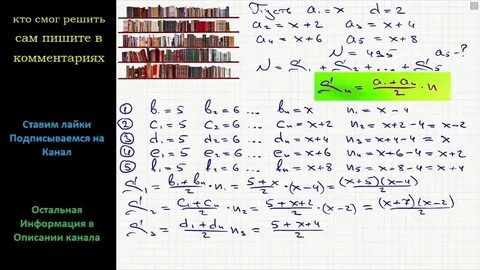 кто смог решить
сам пишите в
комментариях
Ставим лайки
Подписываемся на
Канал
Остальная
Информация в
Описании канала
Пусть a₁ = x d = 2
a₂ = x+2 a₃ = x+4
a₄ = x+6 a₅ = x+8
N = 495 a₅ - ?
N = S₁ + S₂ + ... + S₅
Sₙ = (a₁+aₙ)/2 · n
① b₁ = 5 b₂ = 6 ... bₙ = x n₁ = x-4
② c₁ = 5 c₂ = 6 ... cₙ = x+2 n₂ = x+2-4 = x-2
③ d₁ = 5 d₂ = 6 ... dₙ = x+4 n₃ = x+4-4 = x
④ e₁ = 5 e₂ = 6 ... eₙ = x+6 n₄ = x+6-4 = x+2
⑤ h₁ = 5 h₂ = 6 ... hₙ = x+8 n₅ = x+8-4 = x+4
S₁ = (b₁+bₙ)/2 · n₁ = (5+x)/2 · (x-4) = (x+5)(x-4)/2
S₂ = (c₁+cₙ)/2 · n₂ = (5+x+2)/2 · (x-2) = (x+7)(x-2)/2
S₃ = (d₁+dₙ)/2 n₃ = (5+x+4)/2